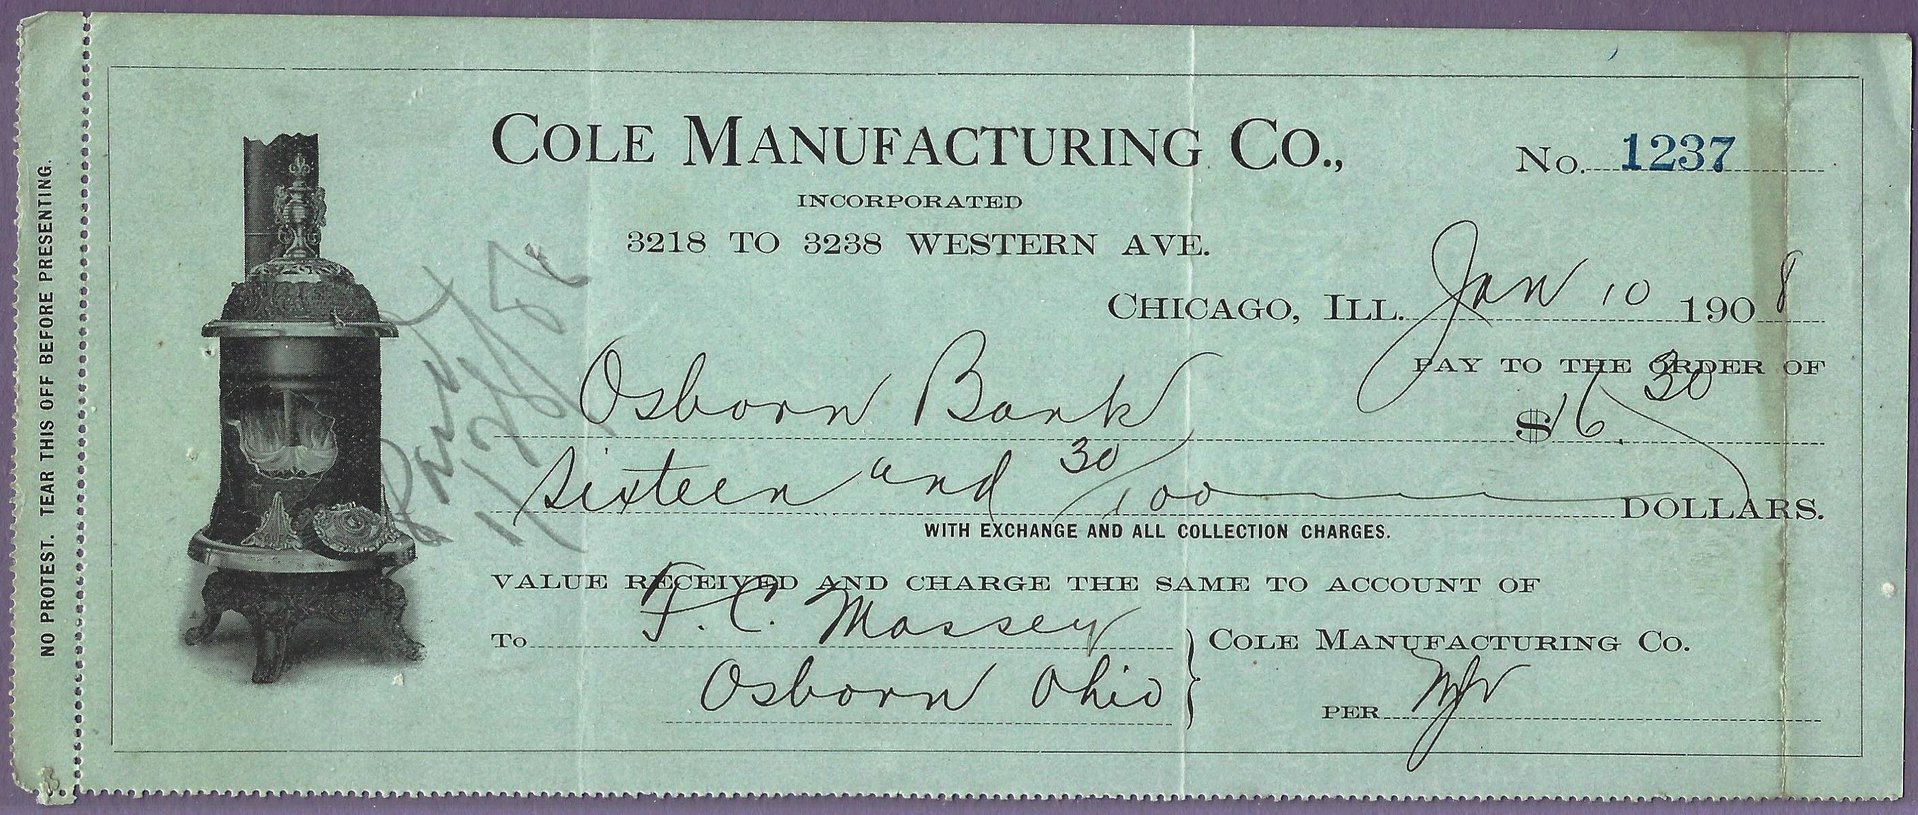 NO PROTEST. TEAR THIS OFF BEFORE PRESENTING.
COLE MANUFACTURING CO.,
No. 1237
INCORPORATED
3218 TO 3238 WESTERN AVE.
CHICAGO, ILL. Jan 10 1908
PAY TO THE ORDER OF
Osborn Bank $16.30
Sixteen and 30/100 DOLLARS.
WITH EXCHANGE AND ALL COLLECTION CHARGES.
VALUE RECEIVED AND CHARGE THE SAME TO ACCOUNT OF
To F. C. Massey
COLE MANUFACTURING CO.
Osborn Ohio
PER